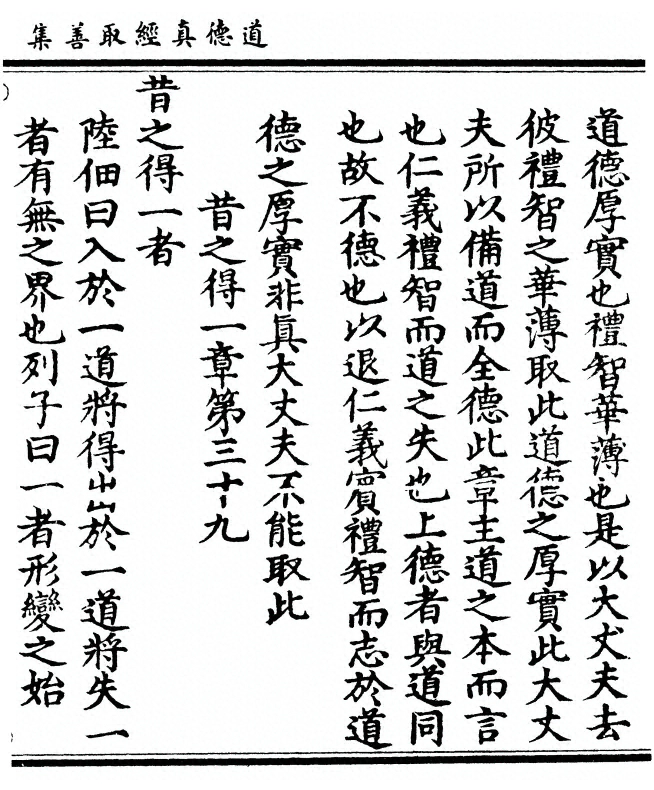 道德真經取善集
道德厚實也禮智華薄也是以大丈夫去
彼禮智之華薄取此道德之厚實此大丈
夫所以備道而全德此章主道之本而言
也仁義禮智而道之失也上德者與道同
也故不德也以退仁義賓禮智而志於道
德之厚實非真大丈夫不能取此
昔之得一章第三十九
昔之得一者
陸佃曰入於一道將得出於一道將失一
者有無之界也列子曰一者形變之始